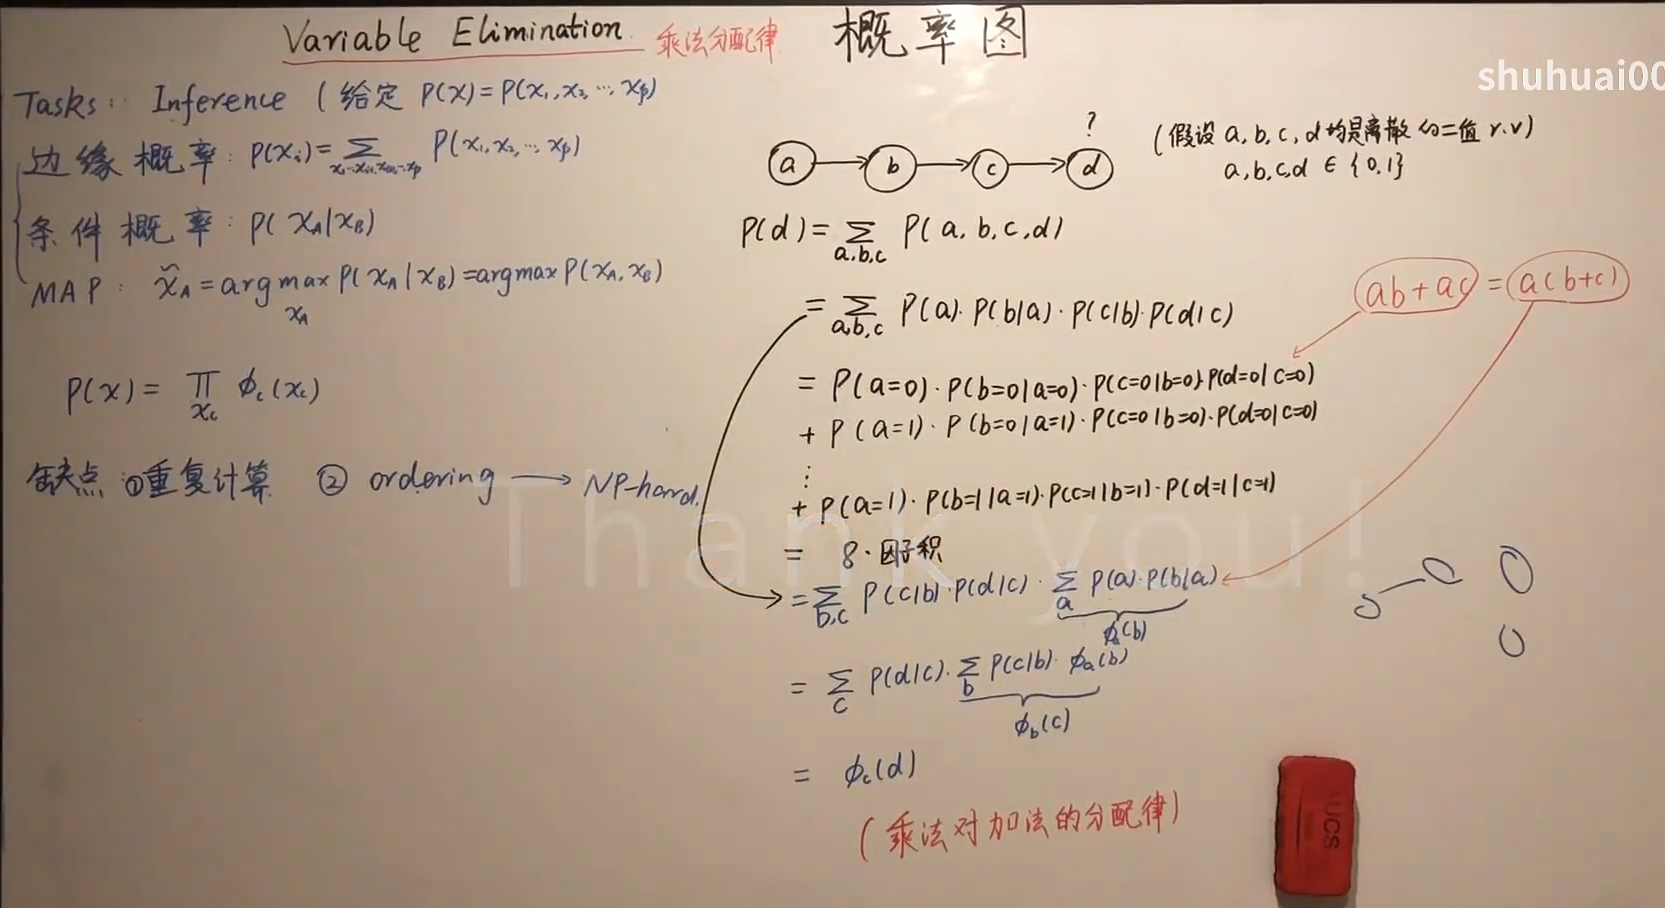 Variable Elimination 乘法分配律 概率图
shuhuai00
Tasks: Inference (给定 P(x)=P(x₁,x₂,…,xₚ)
边缘概率: P(xᵢ)=∑ P(x₁,x₂,…,xₚ)
x₁…xᵢ₋₁,xᵢ₊₁…xₚ
条件概率: P(x_A|x_B)
MAP: x̃_A = argmax P(x_A|x_B) = argmax P(x_A,x_B)
x_A
P(x) = ∏ ϕ_c(x_c)
x_c
缺点 ①重复计算 ② ordering → NP-hard.
?
a → b → c → d
(假设 a,b,c,d 均是离散的二值 r.v)
a,b,c,d ∈ {0,1}
P(d) = ∑ P(a,b,c,d)
a,b,c
= ∑ P(a)·P(b|a)·P(c|b)·P(d|c)
a,b,c
ab+ac = a(b+c)
= P(a=0)·P(b=0|a=0)·P(c=0|b=0)·P(d=0|c=0)
+ P(a=1)·P(b=0|a=1)·P(c=0|b=0)·P(d=0|c=0)
⋮
+ P(a=1)·P(b=1|a=1)·P(c=1|b=1)·P(d=1|c=1)
= 8·因子积
= ∑ P(c|b)·P(d|c)·∑ P(a)·P(b|a)
b,c a
ϕ_a(b)
= ∑ P(d|c)·∑ P(c|b)·ϕ_a(b)
c b
ϕ_b(c)
= ϕ_c(d)
(乘法对加法的分配律)
Thank you!
UCS